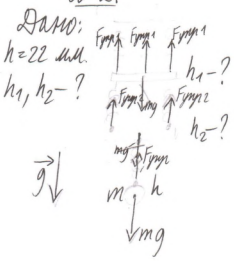 Дано:
h=22 мм.
h₁, h₂-?
Fупр1 Fупр1 Fупр1
h₁-?
Fупр2 mg Fупр2
h₂-?
mg Fупр
g m h
mg